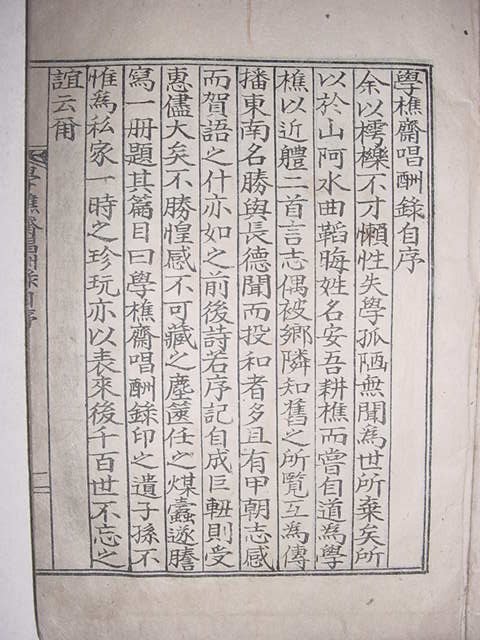 學樵齋唱酬錄自序
余以樗櫟不才懶性失學孤陋無聞爲世所棄矣所
以於山阿水曲韜晦姓名安吾耕樵而嘗自道爲學
樵以近體二首言志偶被鄕隣知舊之所覽互爲傳
播東南名勝與長德聞而投和者多且有甲朝志感
而賀語之什亦如之前後詩若序記自成巨軸則受
惠儘大矣不勝惶感不可藏之塵篋任之煤蠹遂謄
寫一册題其篇目曰學樵齋唱酬錄印之遺子孫不
惟爲私家一時之珍玩亦以表來後千百世不忘之
誼云爾
學樵齋唱酬錄自序
一